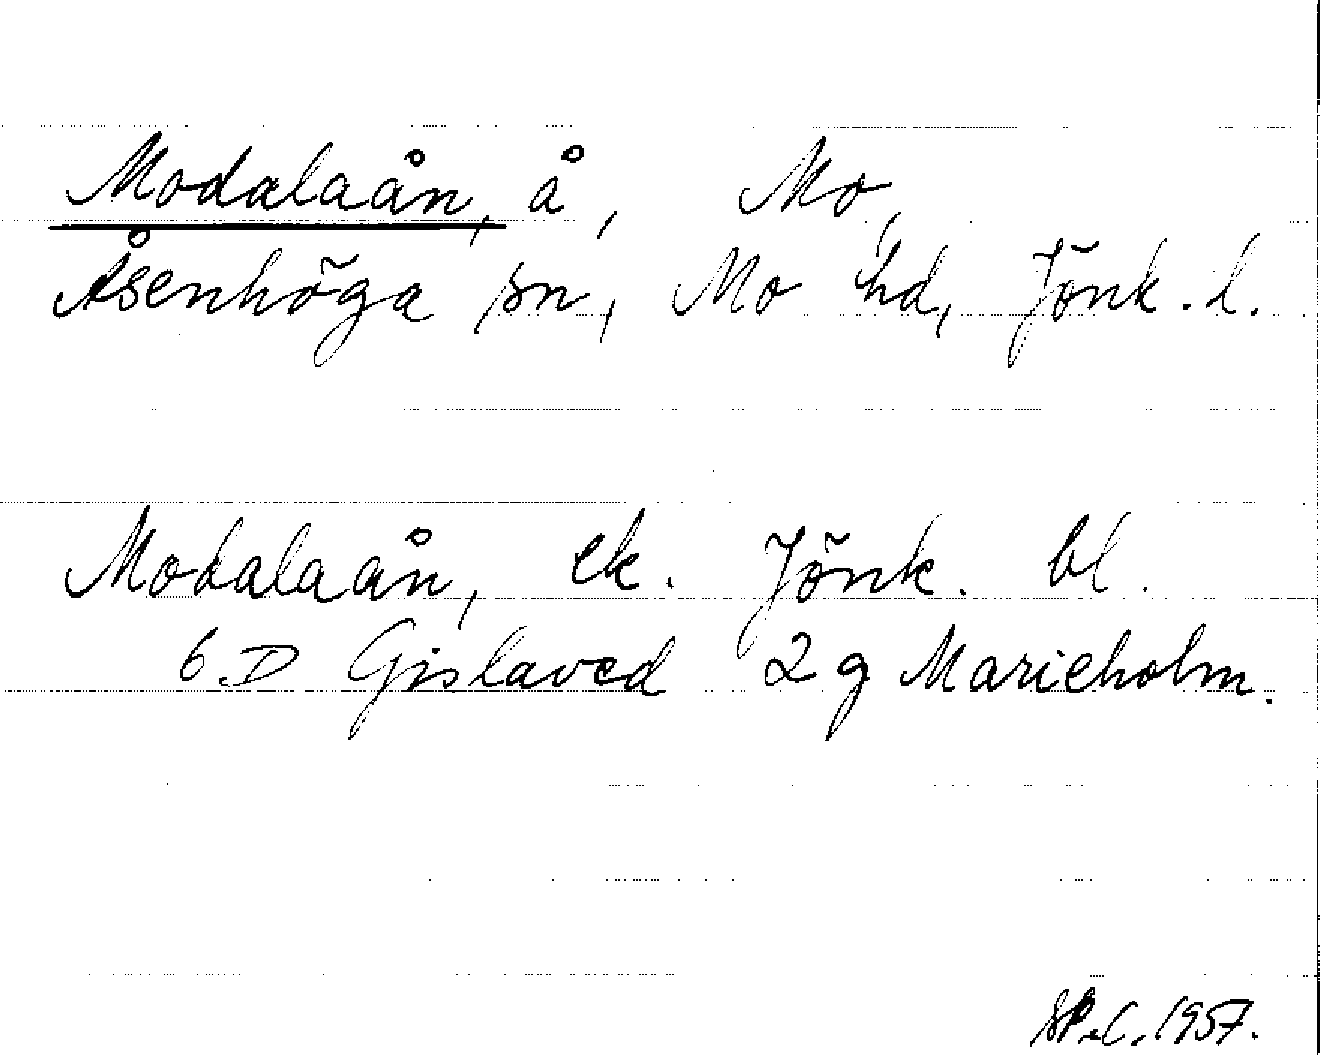 Modalaån, å, Mo,
Åsenhöga sn, Mo hd, Jönk. l.
Modalaån, ek. Jönk. bl.
6.D Gislaved 2 g Marieholm.
1957.